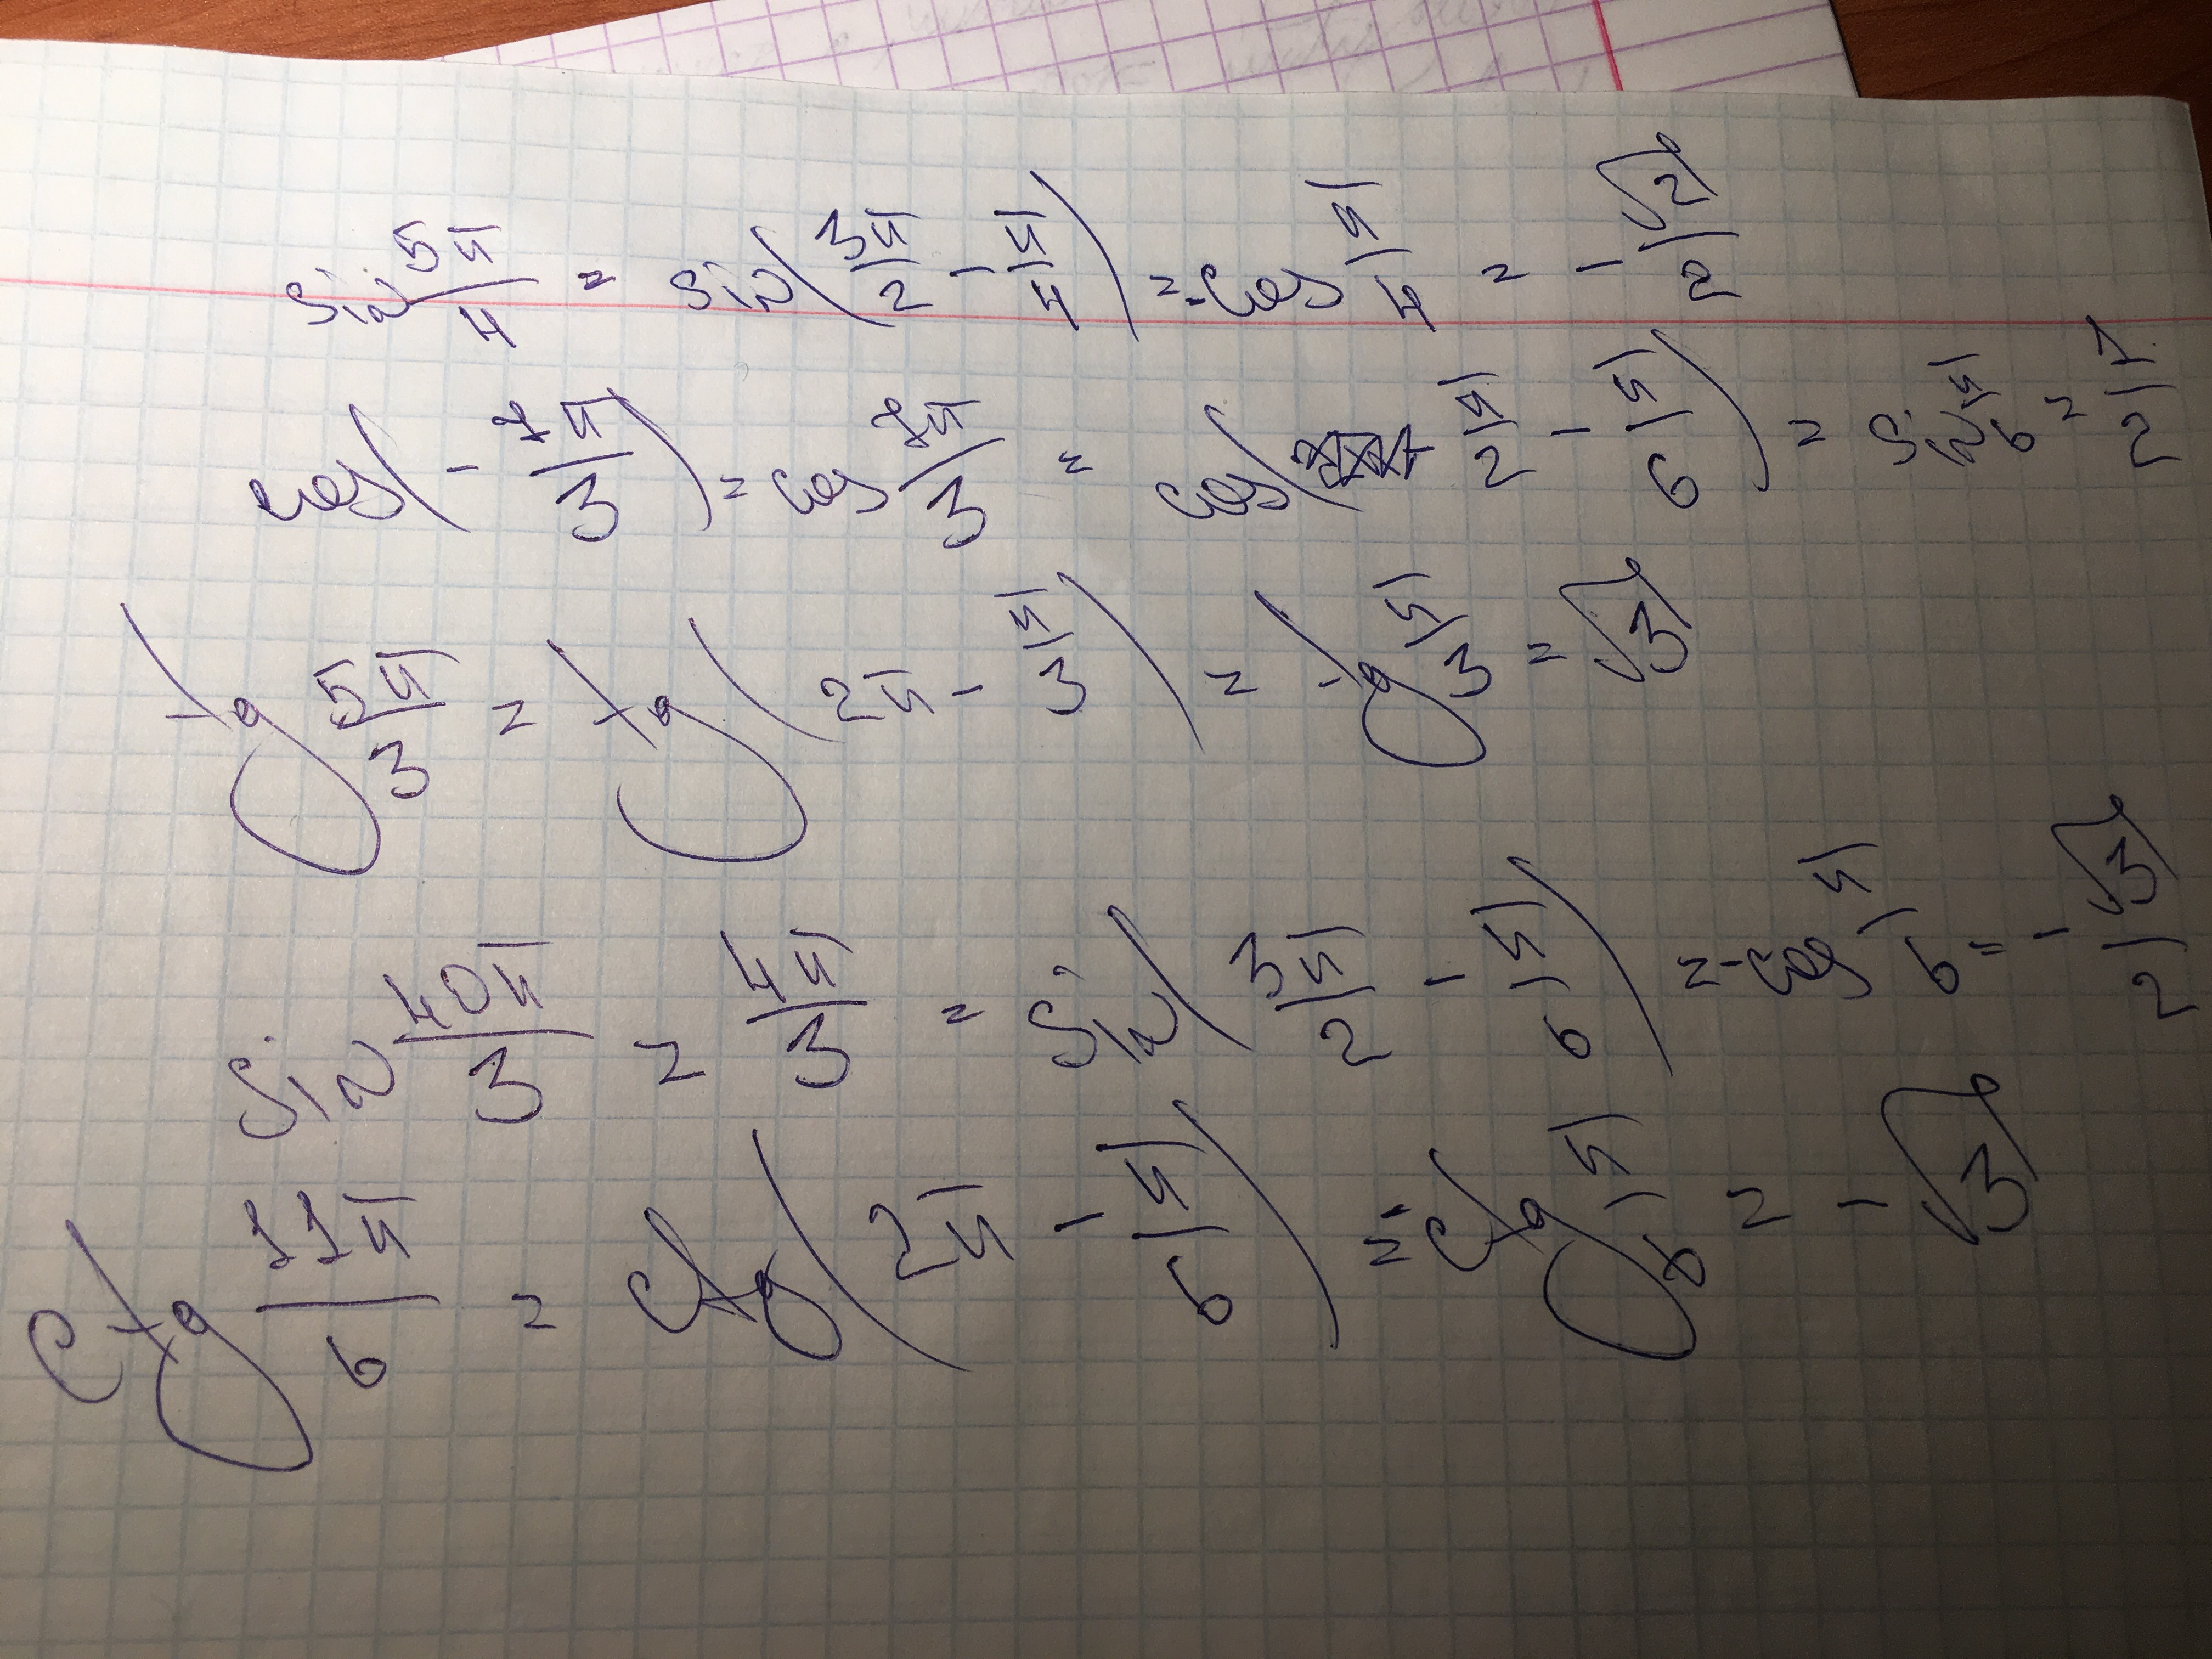 sin 5π/4 = sin(3π/2 - π/4) = -cos π/4 = -√2/2
cos(-7π/3) = cos 7π/3 = cos(π/2 - π/6) = sin π/6 = 1/2
tg 5π/3 = tg(2π - π/3) = tg π/3 = √3
sin 40π/3 = 4π/3 = sin(3π/2 - π/6) = -cos π/6 = -√3/2
ctg 11π/6 = ctg(2π - π/6) = -ctg π/6 = -√3